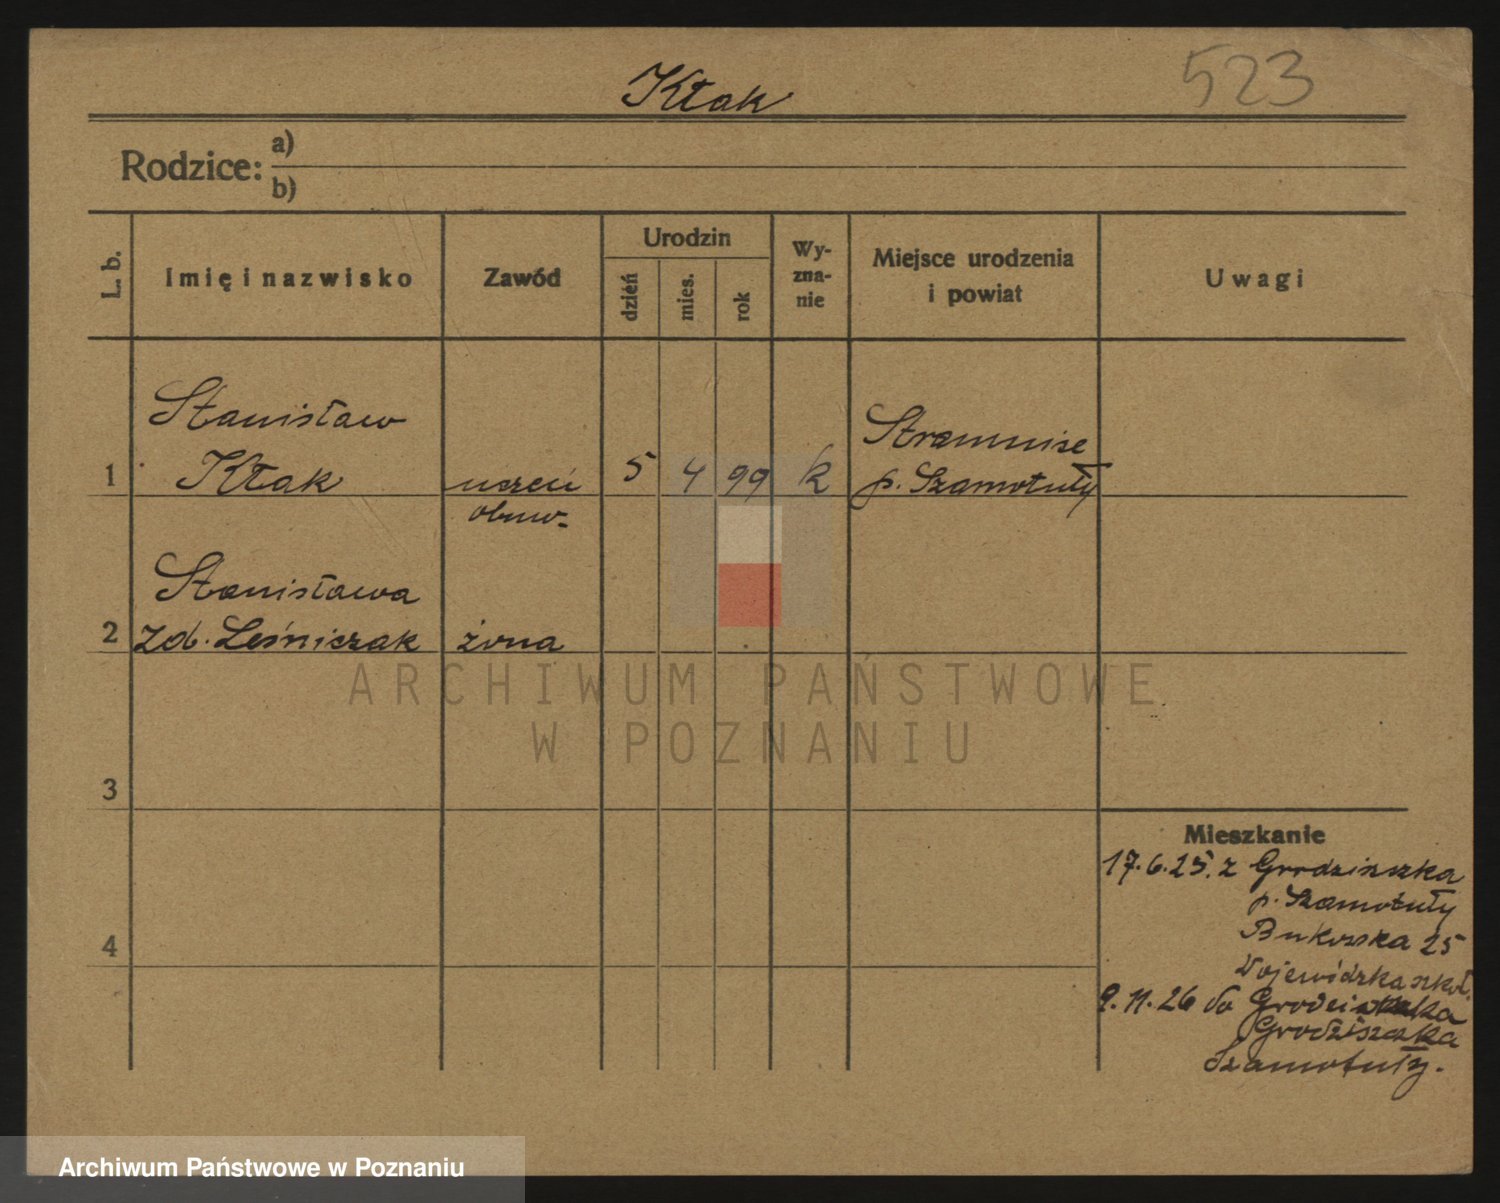 523
Kłak
Rodzice: a)
b)
L. b.
Imię i nazwisko
Zawód
Urodzin
dzień
mies.
rok
Wy-
zna-
nie
Miejsce urodzenia
i powiat
Uwagi
Stanisław
1 Kłak uczeń 5 4 99 k
obuw-
Stramnise
p. Szamotuły
Stanisława
2 zd. Leśniczak żona
3
4
Mieszkanie
17.6.25. z Grodziszczka
p. Szamotuły
Bukowska 25
Wojewódzka szkoł.
9.11.26 do
Grodziszczka
Szamotuły.
ARCHIWUM PAŃSTWOWE
W POZNANIU
Archiwum Państwowe w Poznaniu